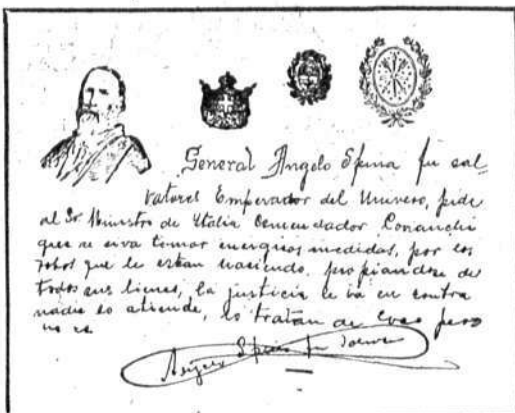 General Angelo Spina fu Sal
vatores Emperador del Universo, pide
al Sr. Ministro de Italia Comendador
que se sirva tomar energicas medidas, por los
robos que le estan haciendo, propiandose de
todos sus bienes, la justicia le va en contra
nadie lo atiende, lo tratan de loco pero
no es
Angelo Spina fu